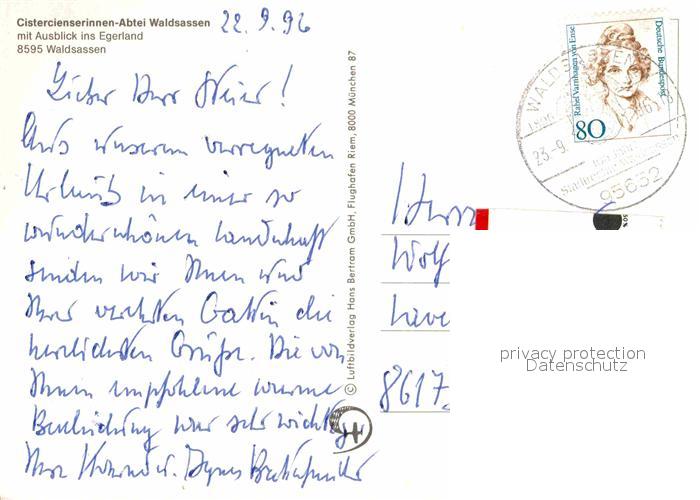 Cistercienserinnen-Abtei Waldsassen
mit Ausblick ins Egerland
8595 Waldsassen
22.9.96
Lieber Herr
Aus unserem verregneten
Urlaub in einer so
wunderschönen Landschaft
senden wir Ihnen und
Ihrer verehrten Gattin die
herzlichsten Grüße. Die von
Ihnen empfohlene warme
Bekleidung war sehr wichtig
Ihre
© Luftbildverlag Hans Bertram GmbH, Flughafen Riem, 8000 München 87
Rahel Varnhagen von Ense
Deutsche Bundespost
80
WALDSASSEN
23.-9.
95652
50%
Herrn
Wolf
8617
privacy protection
Datenschutz